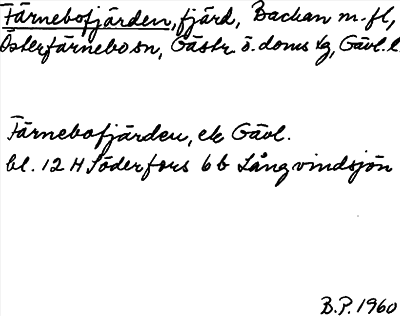 Färnebofjärden, fjärd, Backan m.fl,
Österfärnebo sn, Gästr. ö. doms lg, Gävl. l.
Färnebofjärden, ek Gävl.
bl. 12 H Söderfors 6 b Långvindsjön
B.P. 1960